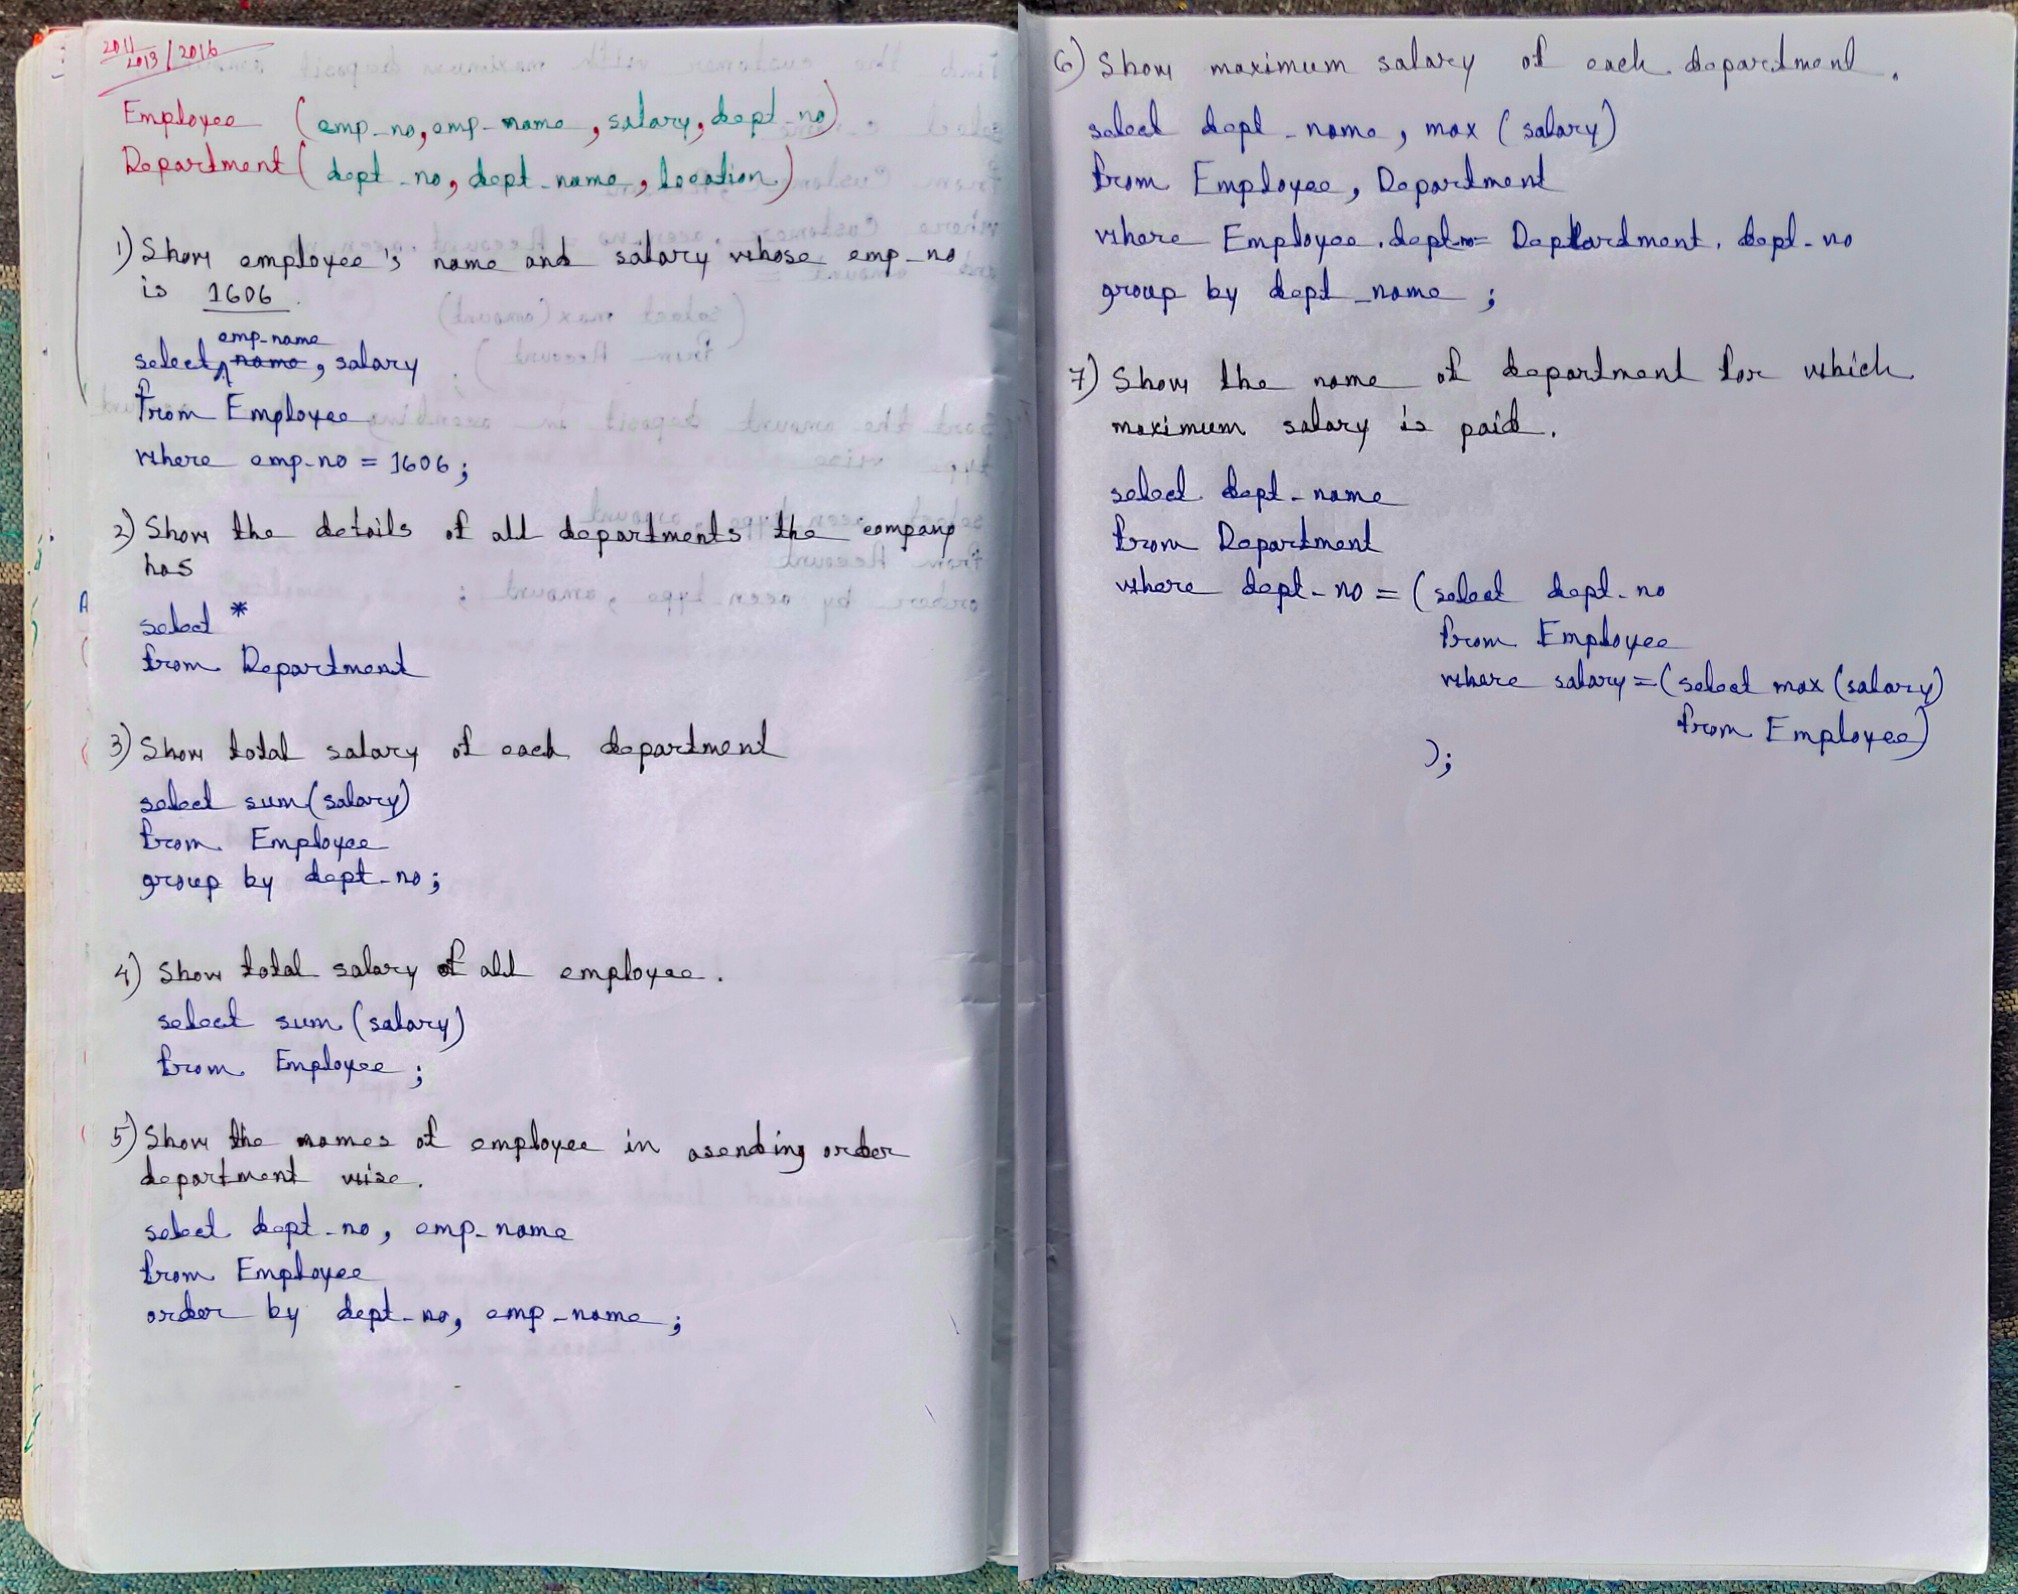 2011
2013 / 2016
Employee (emp_no, emp_name, salary, dept_no)
Department (dept_no, dept_name, location)
1) Show employee's name and salary whose emp_no
is 1606.
emp_name
select name, salary
from Employee
where emp_no = 1606;
2) Show the details of all departments the company
has
select *
from Department
3) Show total salary of each department
select sum(salary)
from Employee
group by dept_no;
4) Show total salary of all employee.
select sum (salary)
from Employee;
5) Show the names of employee in asending order
department wise.
select dept_no, emp_name
from Employee
order by dept_no, emp_name;
6) Show maximum salary of each department.
select dept_name, max (salary)
from Employee, Department
where Employee.dept_no = Department.dept_no
group by dept_name;
7) Show the name of department for which
maximum salary is paid.
select dept_name
from Department
where dept_no = (select dept_no
from Employee
where salary = (select max (salary)
from Employee)
);